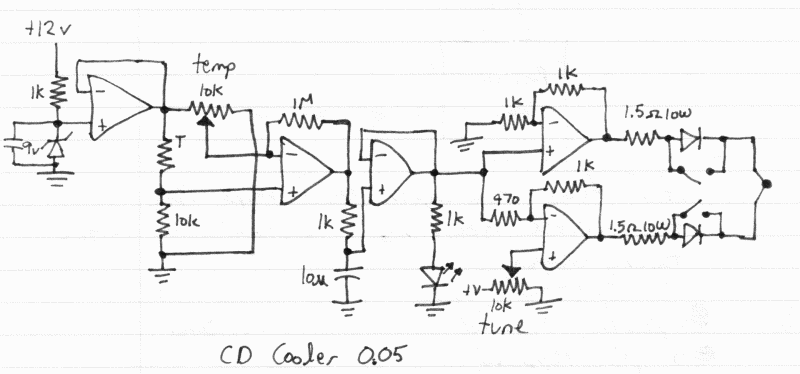 +12v
1k
9v
temp
10k
T
10k
1M
1k
10u
1k
1k
1k
470
1k
+V
10k
tune
1.5Ω 10W
1.5Ω 10W
CD Cooler 0.05